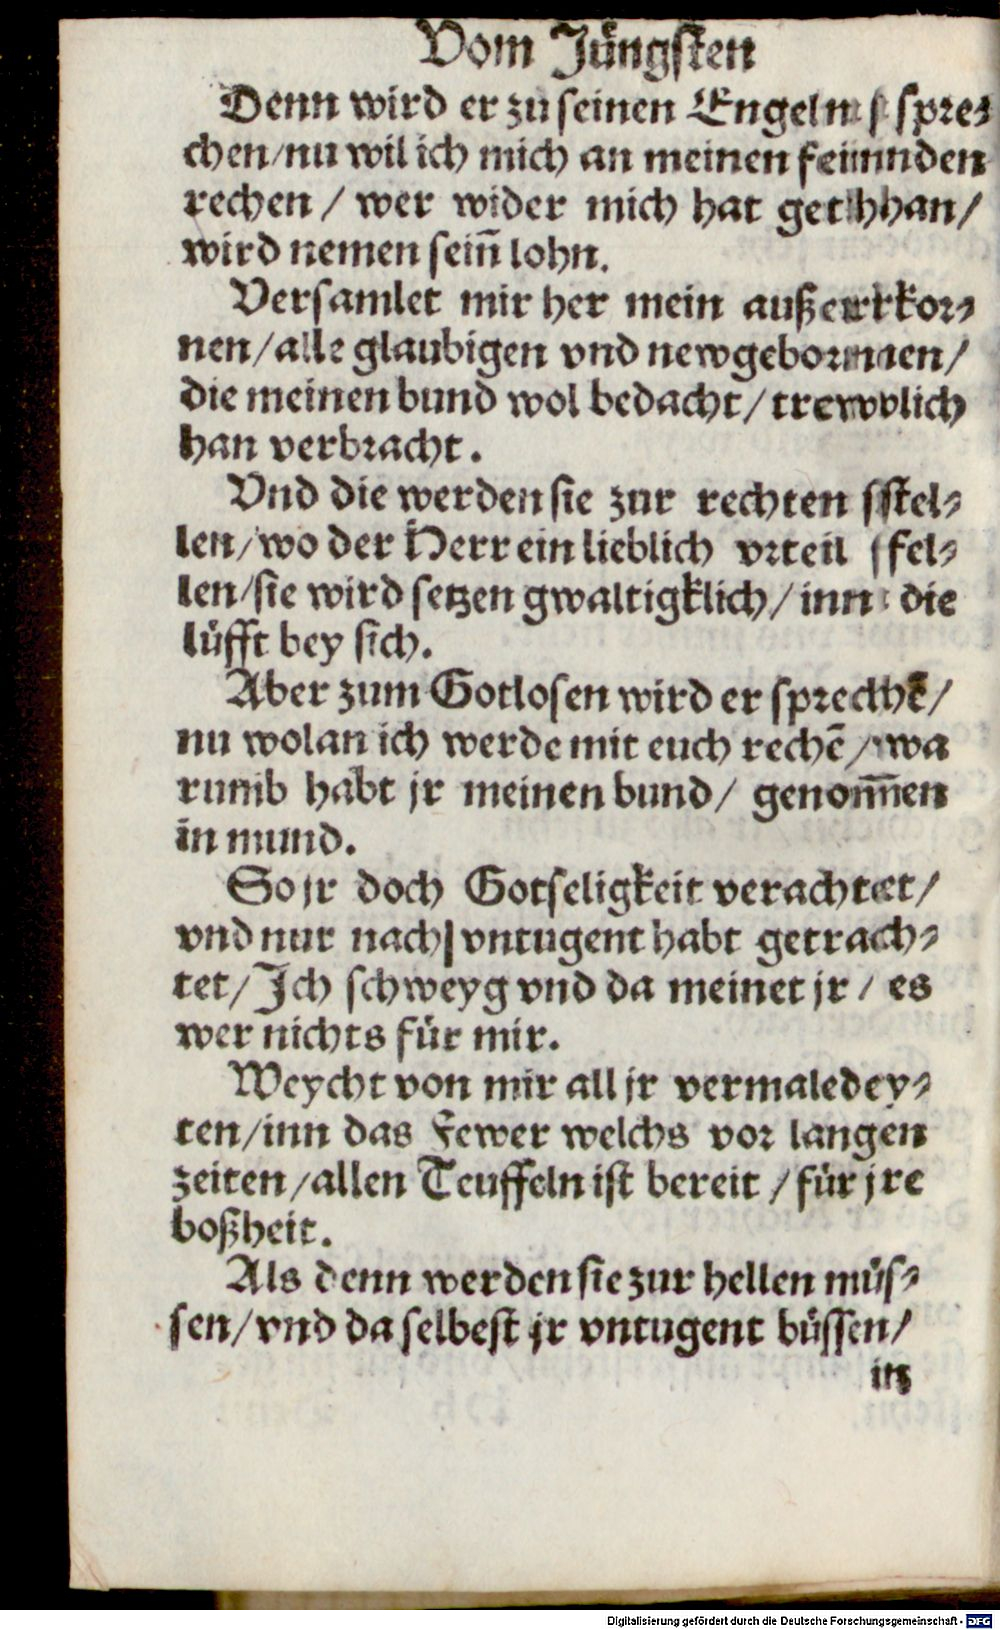 Vom Jüngsten
Denn wird er zu seinen Engeln spre-
chen/nu wil ich mich an meinen feinden
rechen / wer wider mich hat gethan/
wird nemen sein̄ lohn.
Versamlet mir her mein außerkor-
nen/alle glaubigen vnd newgebornen/
die meinen bund wol bedacht/trewlich
han verbracht.
Vnd die werden sie zur rechten stel-
len/wo der Herr ein lieblich vrteil fel-
len/sie wird setzen gwaltigklich/inn die
lüfft bey sich.
Aber zum Gotlosen wird er sprechē/
nu wolan ich werde mit euch rechē/wa
rumb habt jr meinen bund/ genom̄en
in mund.
So jr doch Gotseligkeit verachtet/
vnd nur nach vntugent habt getrach-
tet/Ich schweyg vnd da meinet jr/ es
wer nichts für mir.
Weycht von mir all jr vermaledey-
ten/inn das Fewer welchs vor langen
zeiten/allen Teuffeln ist bereit/für jre
boßheit.
Als denn werden sie zur hellen müs-
sen/vnd da selbest jr vntugent büssen/
in
Digitalisierung gefördert durch die Deutsche Forschungsgemeinschaft - DFG